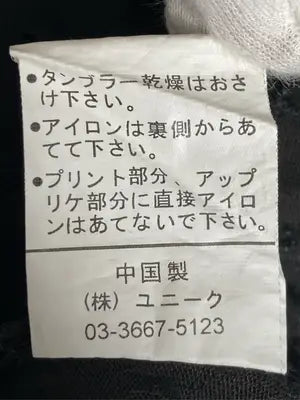 ●タンブラー乾燥はおさ
け下さい。
●アイロンは裏側からあ
てて下さい。
●プリント部分、アップ
リケ部分に直接アイロ
ンはあてないで下さい。
中国製
(株) ユニーク
03-3667-5123